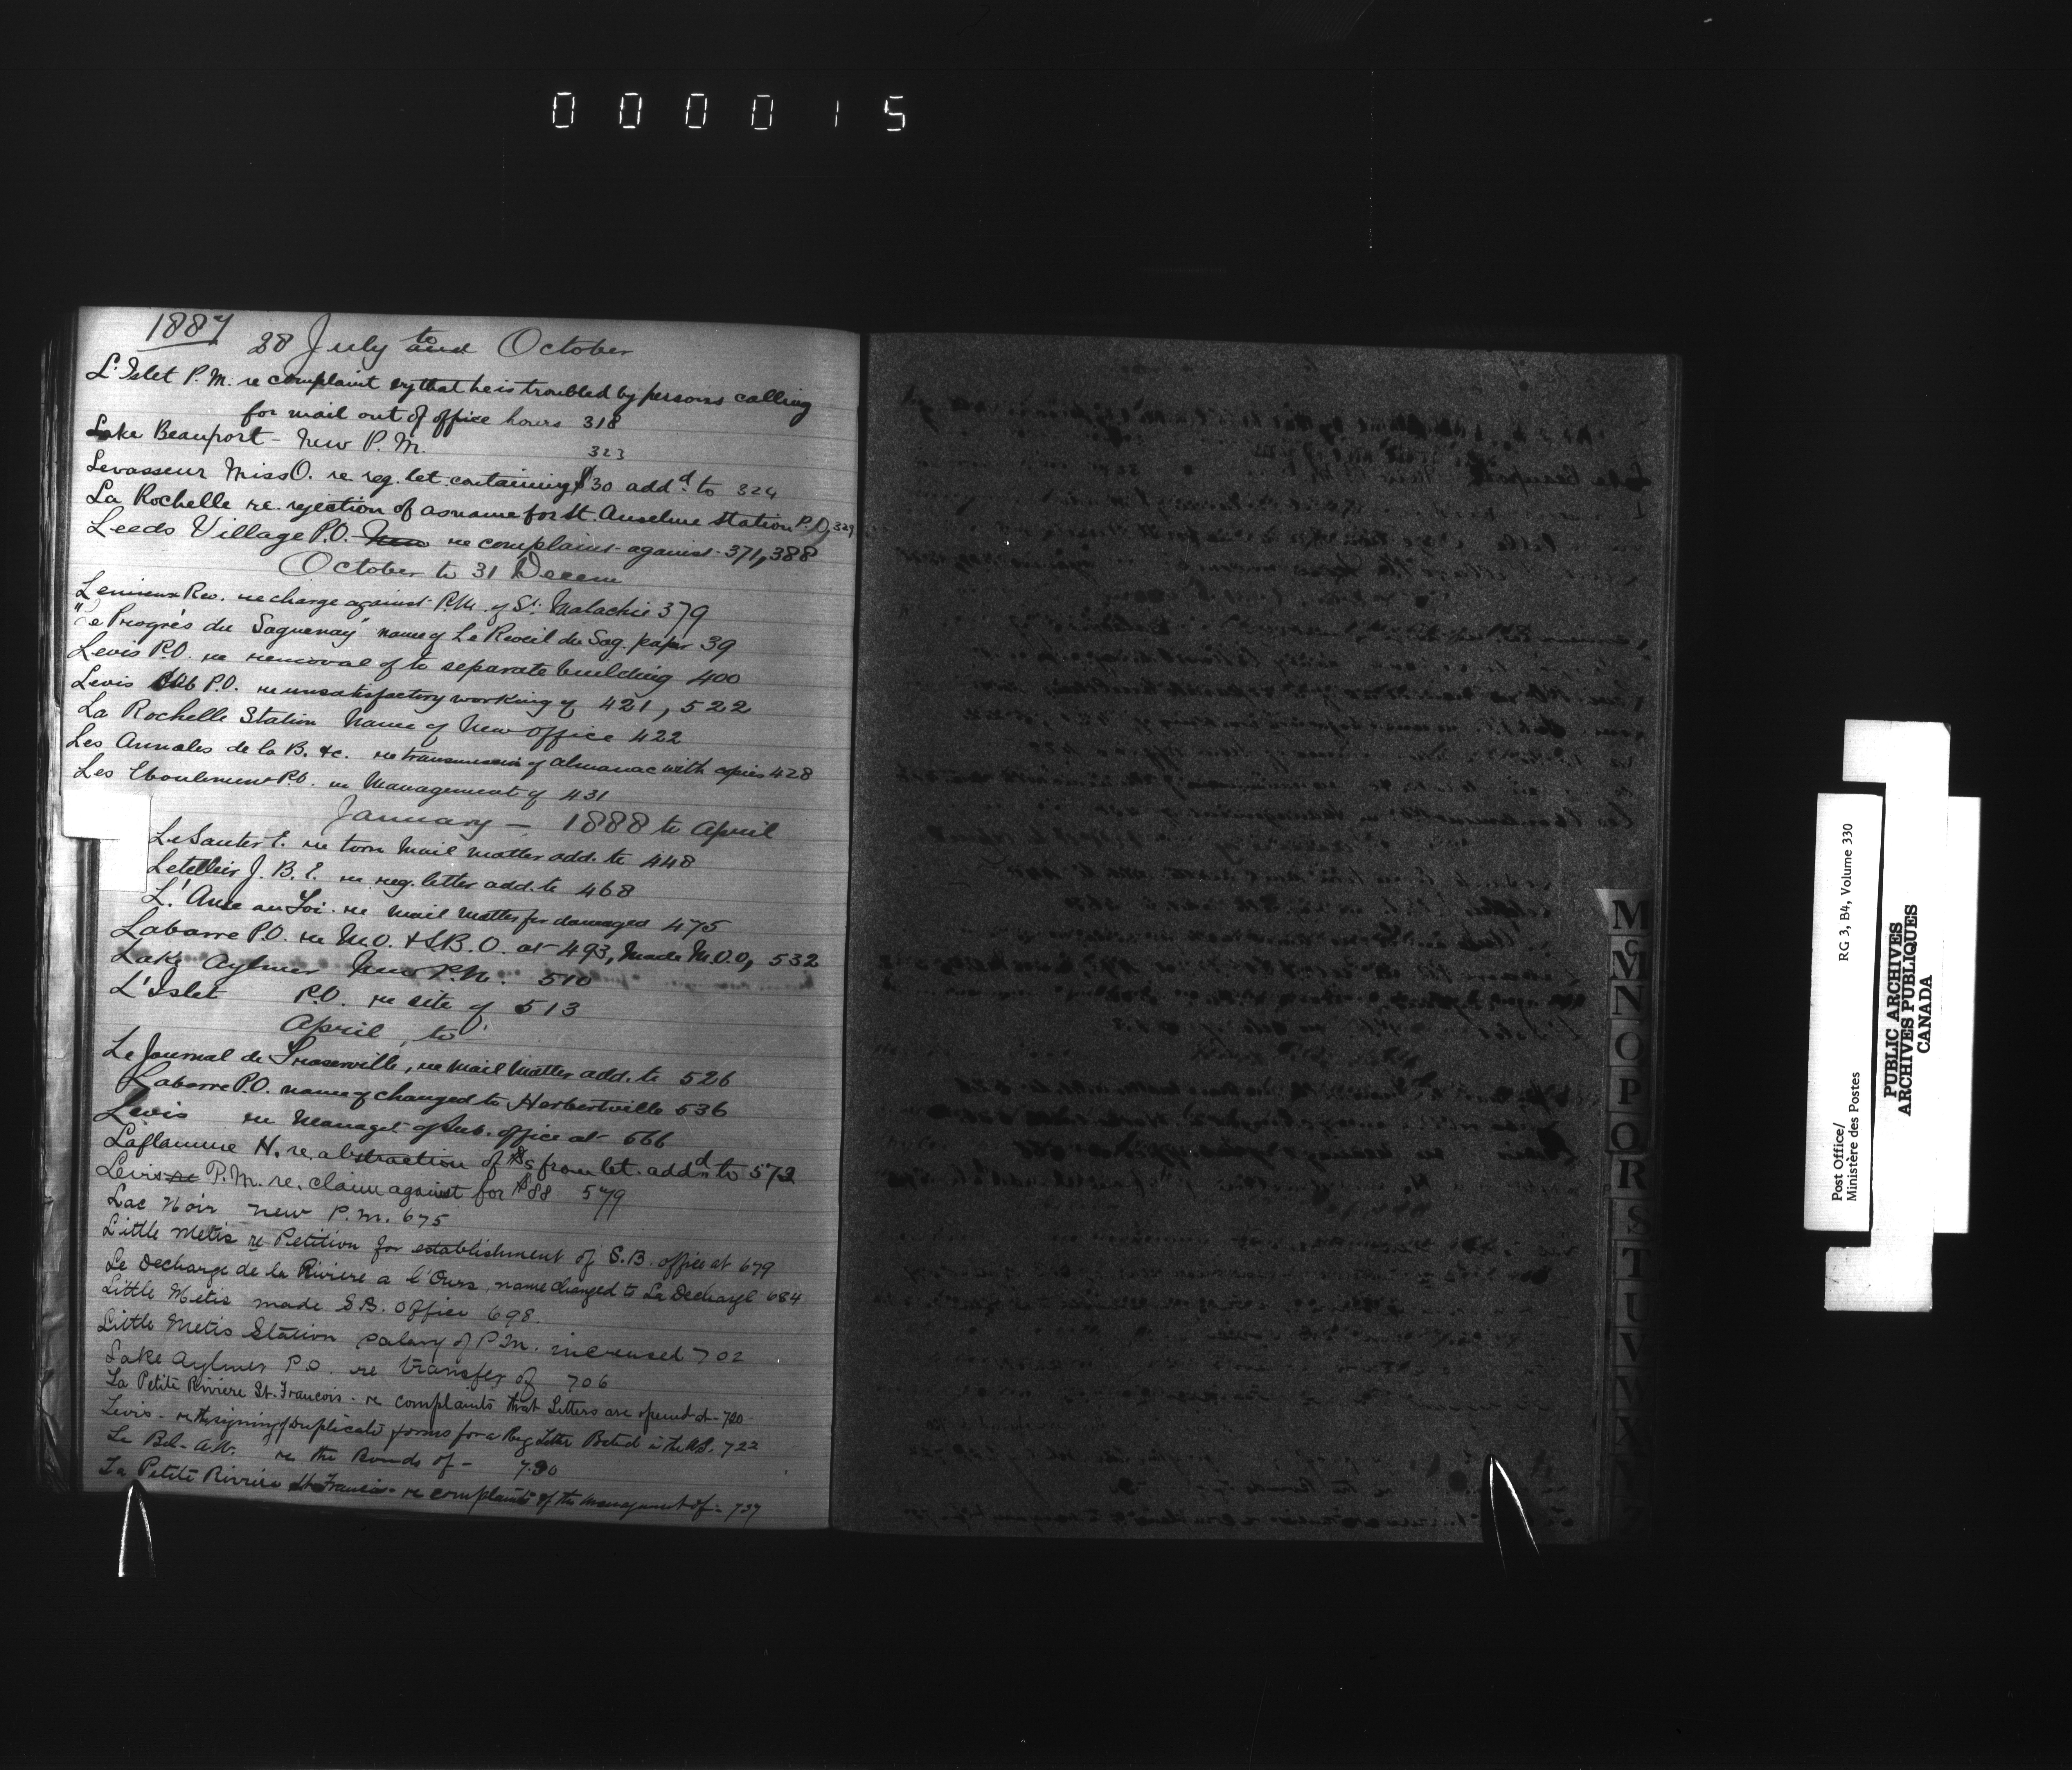 000015
1887
28 July to October
L'Islet P.M. re complaint that he is troubled by persons calling
for mail out of office hours 318
Lake Beauport - New P.M. 323
Levasseur Miss O. re reg. let. containing $30 addd to 324
La Rochelle re. rejection of as name for St. Anselme Station P.O, 329
Leeds Village P.O. New re complaint against 371, 388
October to 31 Decem
Lemieux Rev. re charge against P.M. of St. Malachie 379
"Le Progrès du Saguenay" name of Le Reveil du Sag. paper 39
Levis P.O. re removal of to separate building 400
Levis Sub P.O. re unsatisfactory working of 421, 522
La Rochelle Station Name of New office 422
Les Annales de la B. &c. re transmission of almanac with copies 428
Les Eboulements P.O. re Management of 431
January - 1888 to April
LeSauter E. re torn Mail matter add. to 448
Letellier J. B. E. re reg. letter add. to 468
L'Anse au Foi. re Mail Matter for damaged 475
Labarre P.O. re M.O. & S.B.O. at 493, Made M.O.O, 532
Lake Aylmer New P.M. 510
L'Islet P.O. re site of 513
April, to
Le Journal de Fraserville, re Mail Matter add. to 526
Labarre P.O. name of changed to Herbertville 536
Levis re Managet of Sub. office at 566
Laflamme H. re. abstraction of $5 from let. addd to 572
Levis re P.M. re. claim against for $88 579
Lac Noir New P.M. 675
Little Metis re Petition for establishment of S.B. office at 679
Le Decharge de la Riviere a l'Ours, name changed to La Decharge 684
Little Metis made S.B. Office 698.
Little Metis Station salary of P.M. increased 702
Lake Aylmer P.O. re transfer of 706
La Petite Riviere St. Francois - re complaints that Letters are opened at - 720
Levis - re the signing of Duplicate forms for a Reg Letter Posted in the U.S. 722
Le Bel - A.W. re the Bonds of - 730
La Petite Riviere St. Francis - re complaints of the management of - 737
M
Mc
N
O
P
Q
R
S
T
U
V
W
X
Y
Z
Post Office/
Ministère des Postes
RG 3, B4, Volume 330
PUBLIC ARCHIVES
ARCHIVES PUBLIQUES
CANADA